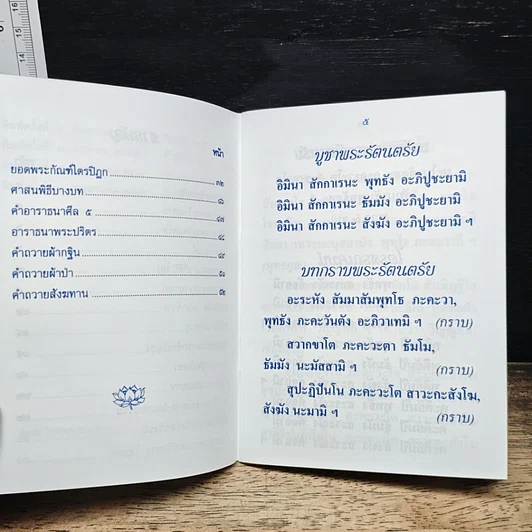 หน้า
ยอดพระกัณฑ์ไตรปิฎก ๓๒
ศาสนพิธีบางบท
คำอาราธนาศีล ๕ ๔๗
อาราธนาพระปริตร
คำถวายผ้ากฐิน ๔๙
คำถวายผ้าป่า
คำถวายสังฆทาน
๕
บูชาพระรัตนตรัย
อิมินา สักกาเรนะ พุทธัง อะภิปูชะยามิ
อิมินา สักกาเรนะ ธัมมัง อะภิปูชะยามิ
อิมินา สักกาเรนะ สังฆัง อะภิปูชะยามิ ฯ
บทกราบพระรัตนตรัย
อะระหัง สัมมาสัมพุทโธ ภะคะวา,
พุทธัง ภะคะวันตัง อะภิวาเทมิ ฯ (กราบ)
สวากขาโต ภะคะวะตา ธัมโม,
ธัมมัง นะมัสสามิ ฯ (กราบ)
สุปะฏิปันโน ภะคะวะโต สาวะกะสังโฆ,
สังฆัง นะมามิ ฯ (กราบ)